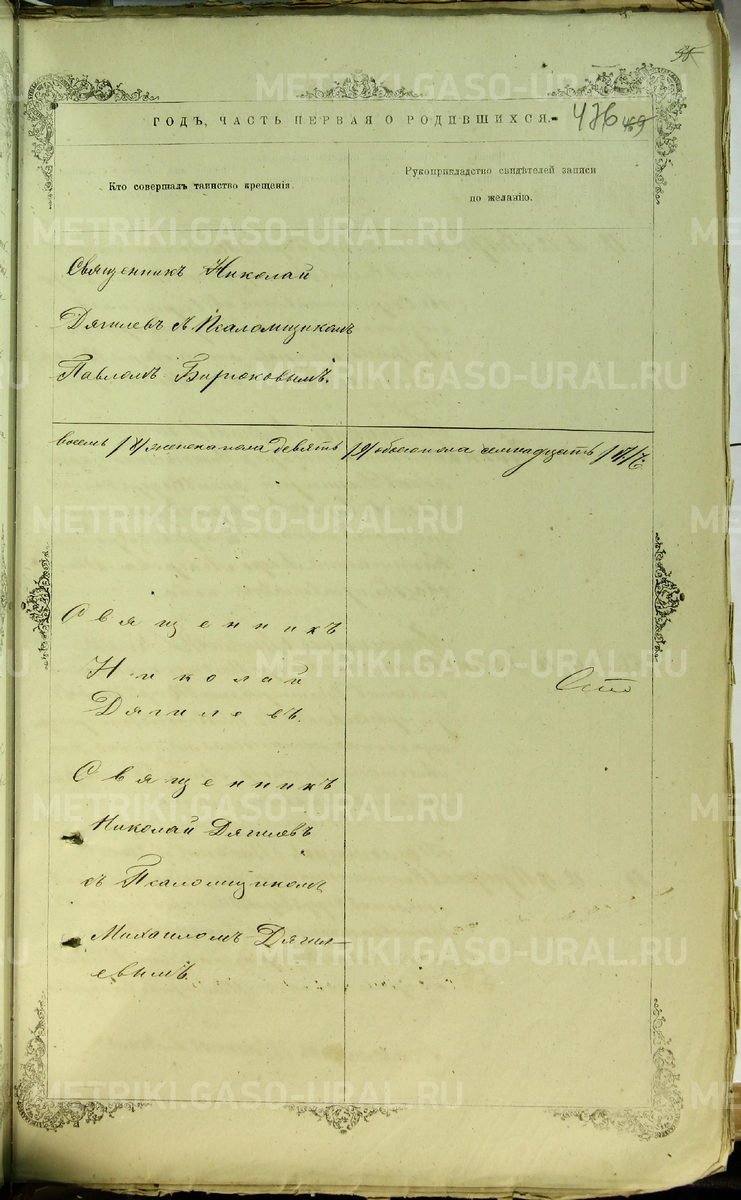 55
ГОДЪ, ЧАСТЬ ПЕРВАЯ О РОДИВШИХСЯ. 476 469
Кто совершалъ таинство крещенія.
Рукоприкладство свидѣтелей записи
по желанію.
Священникъ Николай
Дягилевъ съ Псаломщикомъ
Павломъ Бирюковымъ.
восемь /8/ женска пола девять /9/ обоего пола семнадцать /17/
Священникъ
Николай
Дягилевъ.
Священникъ
Николай Дягилевъ
съ Псаломщикомъ
Михаиломъ Дягил-
евымъ.
METRIKI.GASO-URAL.RU